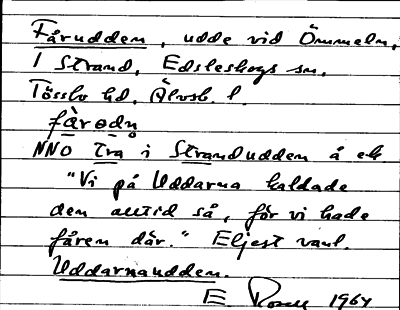 Fårudden, udde vid Ömmeln,
I Strand, Edsleskogs sn,
Tössbo hd, Älvsb. l.
fårədn
NNO Tra i Strandudden å ek
"Vi på Uddarna kallade
den alltid så, för vi hade
fåren där." Eljest vanl.
Uddarnaudden.
E. 1964